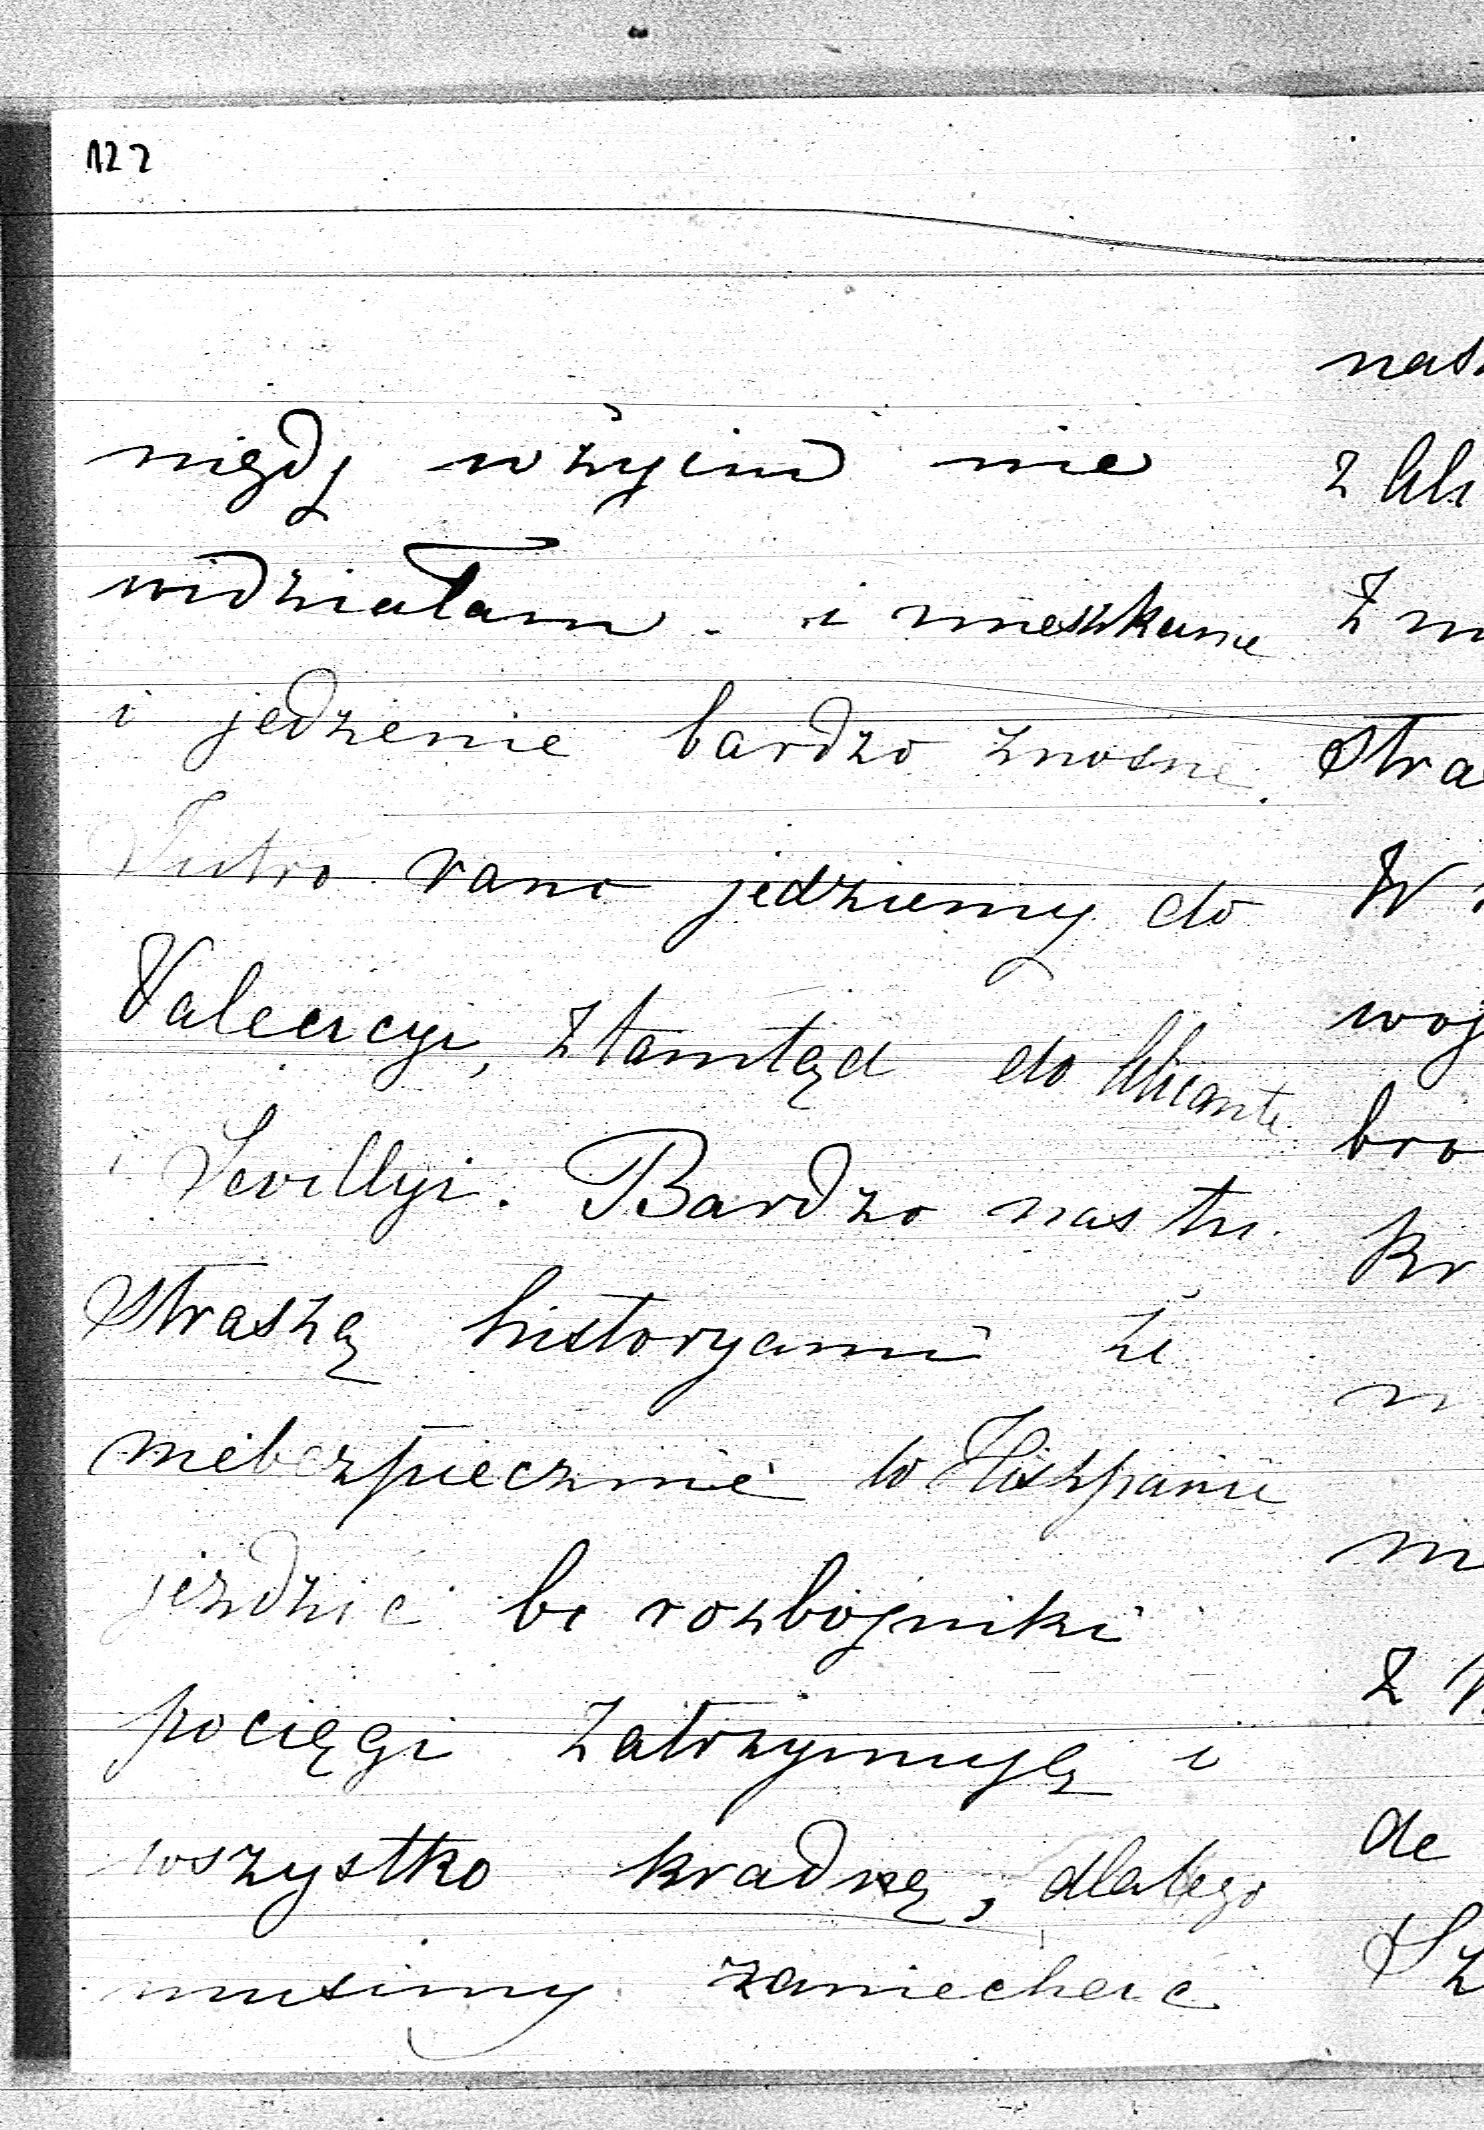 122
nigdy w życiu nie
widziałam. i mieszkanie
i jedzenie bardzo znośne.
Jutro rano jedziemy do
Valencyi, ztamtąd do Alicante
i Sevillyi. Bardzo nas tu
straszą historyami że
niebezpiecznie w Hiszpanii
jeździć bo rozbójniki
pociągi zatrzymują i
wszystko kradną, dlatego
musimy zaniechać
nas
z Ali
z m
stra
W
woj
bro
kr
n
z
de
Sz